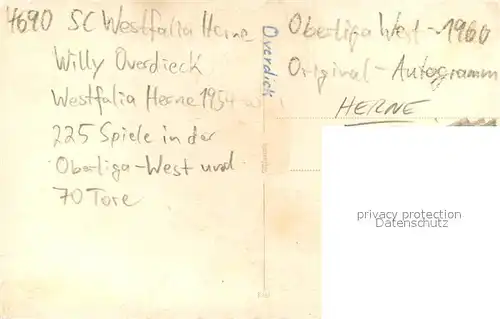 4690 SC Westfalia Herne
Willy Overdieck
Westfalia Herne 1954
225 Spiele in der
Oberliga-West und
70 Tore
Overdick
Oberliga West - 1960
Original - Autogramm
HERNE
privacy protection
Datenschutz